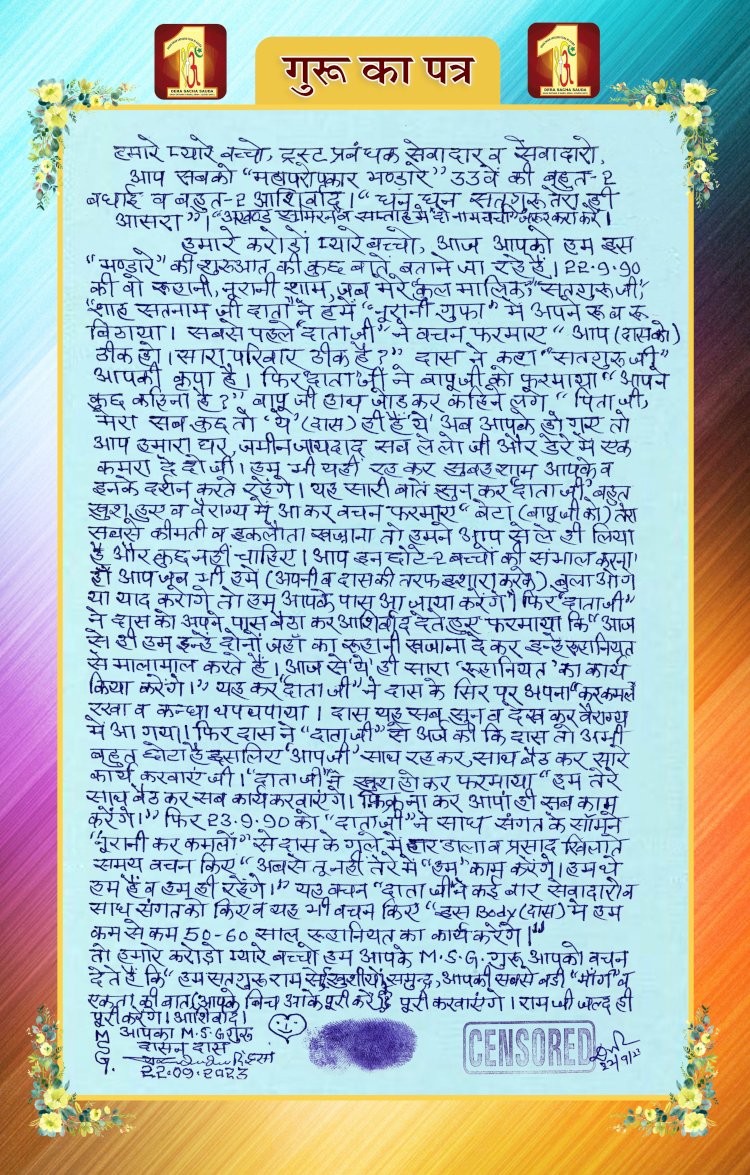 DERA SACHA SAUDA
गुरू का पत्र
DERA SACHA SAUDA
हमारे प्यारे बच्चो, ट्रस्ट प्रबंधक सेवादार व सेवादारो,
आप सबको "महापरोपकार भण्डारे" 33वें की बहुत-2
बधाई व बहुत-2 आशिर्वाद। "धन धन सतगुरू तेरा ही
आसरा"। "अखण्ड सुमिरन व सप्ताह में दो नामचर्चा" जरूर करा करें।
हमारे करोड़ों प्यारे बच्चो, आज आपको हम इस
"भण्डारे" की शुरुआत की कुछ बातें बताने जा रहे हैं। 22.9.90
की वो रूहानी, नूरानी शाम, जब मेरे कुल मालिक, "सतगुरू जी,"
"शाह सतनाम जी दाता" ने हमें "नूरानी गुफा" में अपने रू ब रू
बिठाया। सबसे पहले "दाता जी" ने वचन फरमाए "आप (दास को)
ठीक हो। सारा परिवार ठीक है?" दास ने कहा "सतगुरू जी"
आपकी कृपा है। फिर "दाता जी" ने बापू जी को फरमाया "आपने
कुछ कहिना है?" बापू जी हाथ जोड़ कर कहिने लगे "पिता जी,
मेरा सब कुछ तो 'ये' (दास) ही हैं 'ये' अब आपके हो गए तो
आप हमारा घर, जमीन जायदाद सब ले लो जी और डेरे में एक
कमरा दे दो जी। हम भी यहीं रह कर सुबह शाम आपके व
इनके दर्शन करते रहेंगे। यह सारी बातें सुन कर 'दाता जी' बहुत
खुश हुए व वैराग्य में आ कर वचन फरमाए "बेटा (बापू जी को) तेरा
सबसे कीमती व इकलौता खजाना तो हमने आप से ले ही लिया
है और कुछ नहीं चाहिए। आप इन छोटे-2 बच्चों की संभाल करना
हाँ आप जब भी हमें (अपनी व दास की तरफ इशारा करके) बुलाओगे
या याद करोगे तो हम आपके पास आ जाया करेंगे"। फिर "दाता जी"
ने दास को अपने पास बैठा कर आशिर्वाद देते हुए फरमाया कि "आज
से ही हम इन्हें दोनों जहाँ का रूहानी खजाना दे कर इन्हें रूहानियत
से मालामाल करते हैं। आज से 'ये' ही सारा 'रूहानियत' का कार्य
किया करेंगे।" यह कर "दाता जी" ने दास के सिर पर अपना "करकमल"
रखा व कन्धा थपथपाया। दास यह सब सुन व देख कर वैराग्य
में आ गया। फिर दास ने "दाता जी" से अर्ज की कि दास तो अभी
बहुत छोटा है इसलिए 'आप जी' साथ रह कर, साथ बैठ कर सारे
कार्य करवाएं जी। "दाता जी" ने खुश हो कर फरमाया "हम तेरे
साथ बैठ कर सब कार्य करवाएंगे। फिक्र ना कर आपां ही सब काम
करेंगे।" फिर 23.9.90 को "दाता जी" ने साध संगत के सामने
"नूरानी कर कमलों" से दास के गले में हार डाला व प्रसाद खिलाते
समय वचन किए "अब से तू नहीं तेरे में "हम" काम करेंगे। हम थे
हम हैं व हम ही रहेंगे।" यह वचन "दाता जी" ने कई बार सेवादारों व
साध संगत को किए व यह भी वचन किए "इस Body (दास) में हम
कम से कम 50-60 साल रूहानियत का कार्य करेंगे।"
तो हमारे करोड़ों प्यारे बच्चो हम आपके M.S.G. गुरू आपको वचन
देते हैं कि "हम सतगुरू राम से, खुशीयों समुन्द्र, आपकी सबसे बड़ी "माँग" व
एकता की बात (आपके बिच आके पूरी करें) पूरी करवाएंगे। राम जी जल्द ही
पूरी करेंगे। आशिर्वाद।
आपका M.S.G गुरू
दासन दास
22.09.2023
M
S
G.
CENSORED
22/9/23